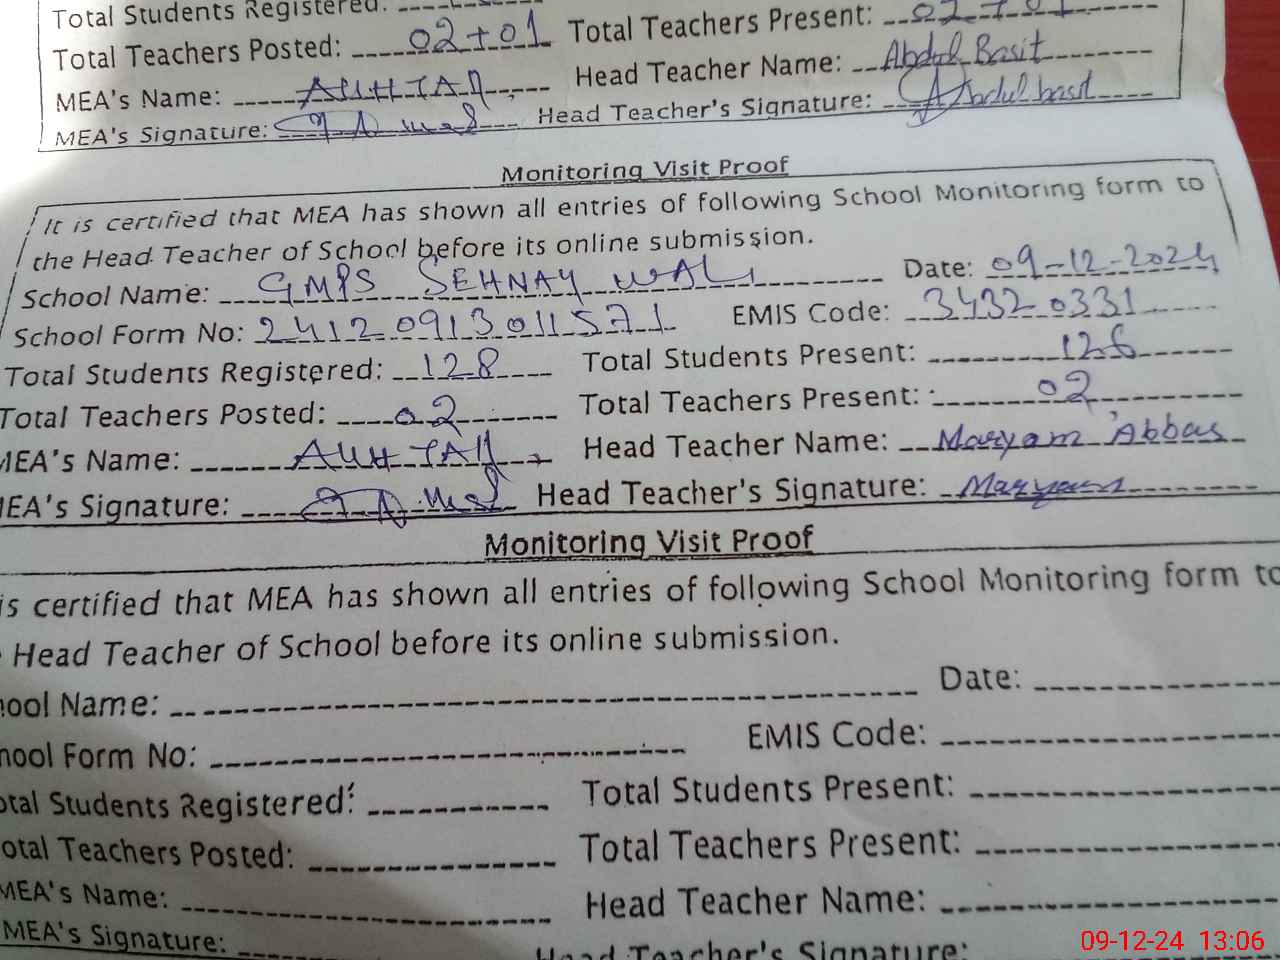 Total Students Registered:
Total Teachers Posted: 02+01 Total Teachers Present: 02+01
MEA's Name: Head Teacher Name: Abdul Basit
MEA's Signature: Head Teacher's Signature: Abdul basit
Monitoring Visit Proof
It is certified that MEA has shown all entries of following School Monitoring form to
the Head Teacher of School before its online submission.
School Name: GMPS SEHNAY WALI Date: 09-12-2024
School Form No: 24120913011571 EMIS Code: 34320331
Total Students Registered: 128 Total Students Present: 126
Total Teachers Posted: 02 Total Teachers Present: 02
MEA's Name: Head Teacher Name: Maryam Abbas
MEA's Signature: Head Teacher's Signature: Maryam
Monitoring Visit Proof
is certified that MEA has shown all entries of following School Monitoring form to
Head Teacher of School before its online submission.
ool Name: Date:
hool Form No: EMIS Code:
otal Students Registered: Total Students Present:
otal Teachers Posted: Total Teachers Present:
MEA's Name: Head Teacher Name:
MEA's Signature: Head Teacher's Signature:
09-12-24 13:06